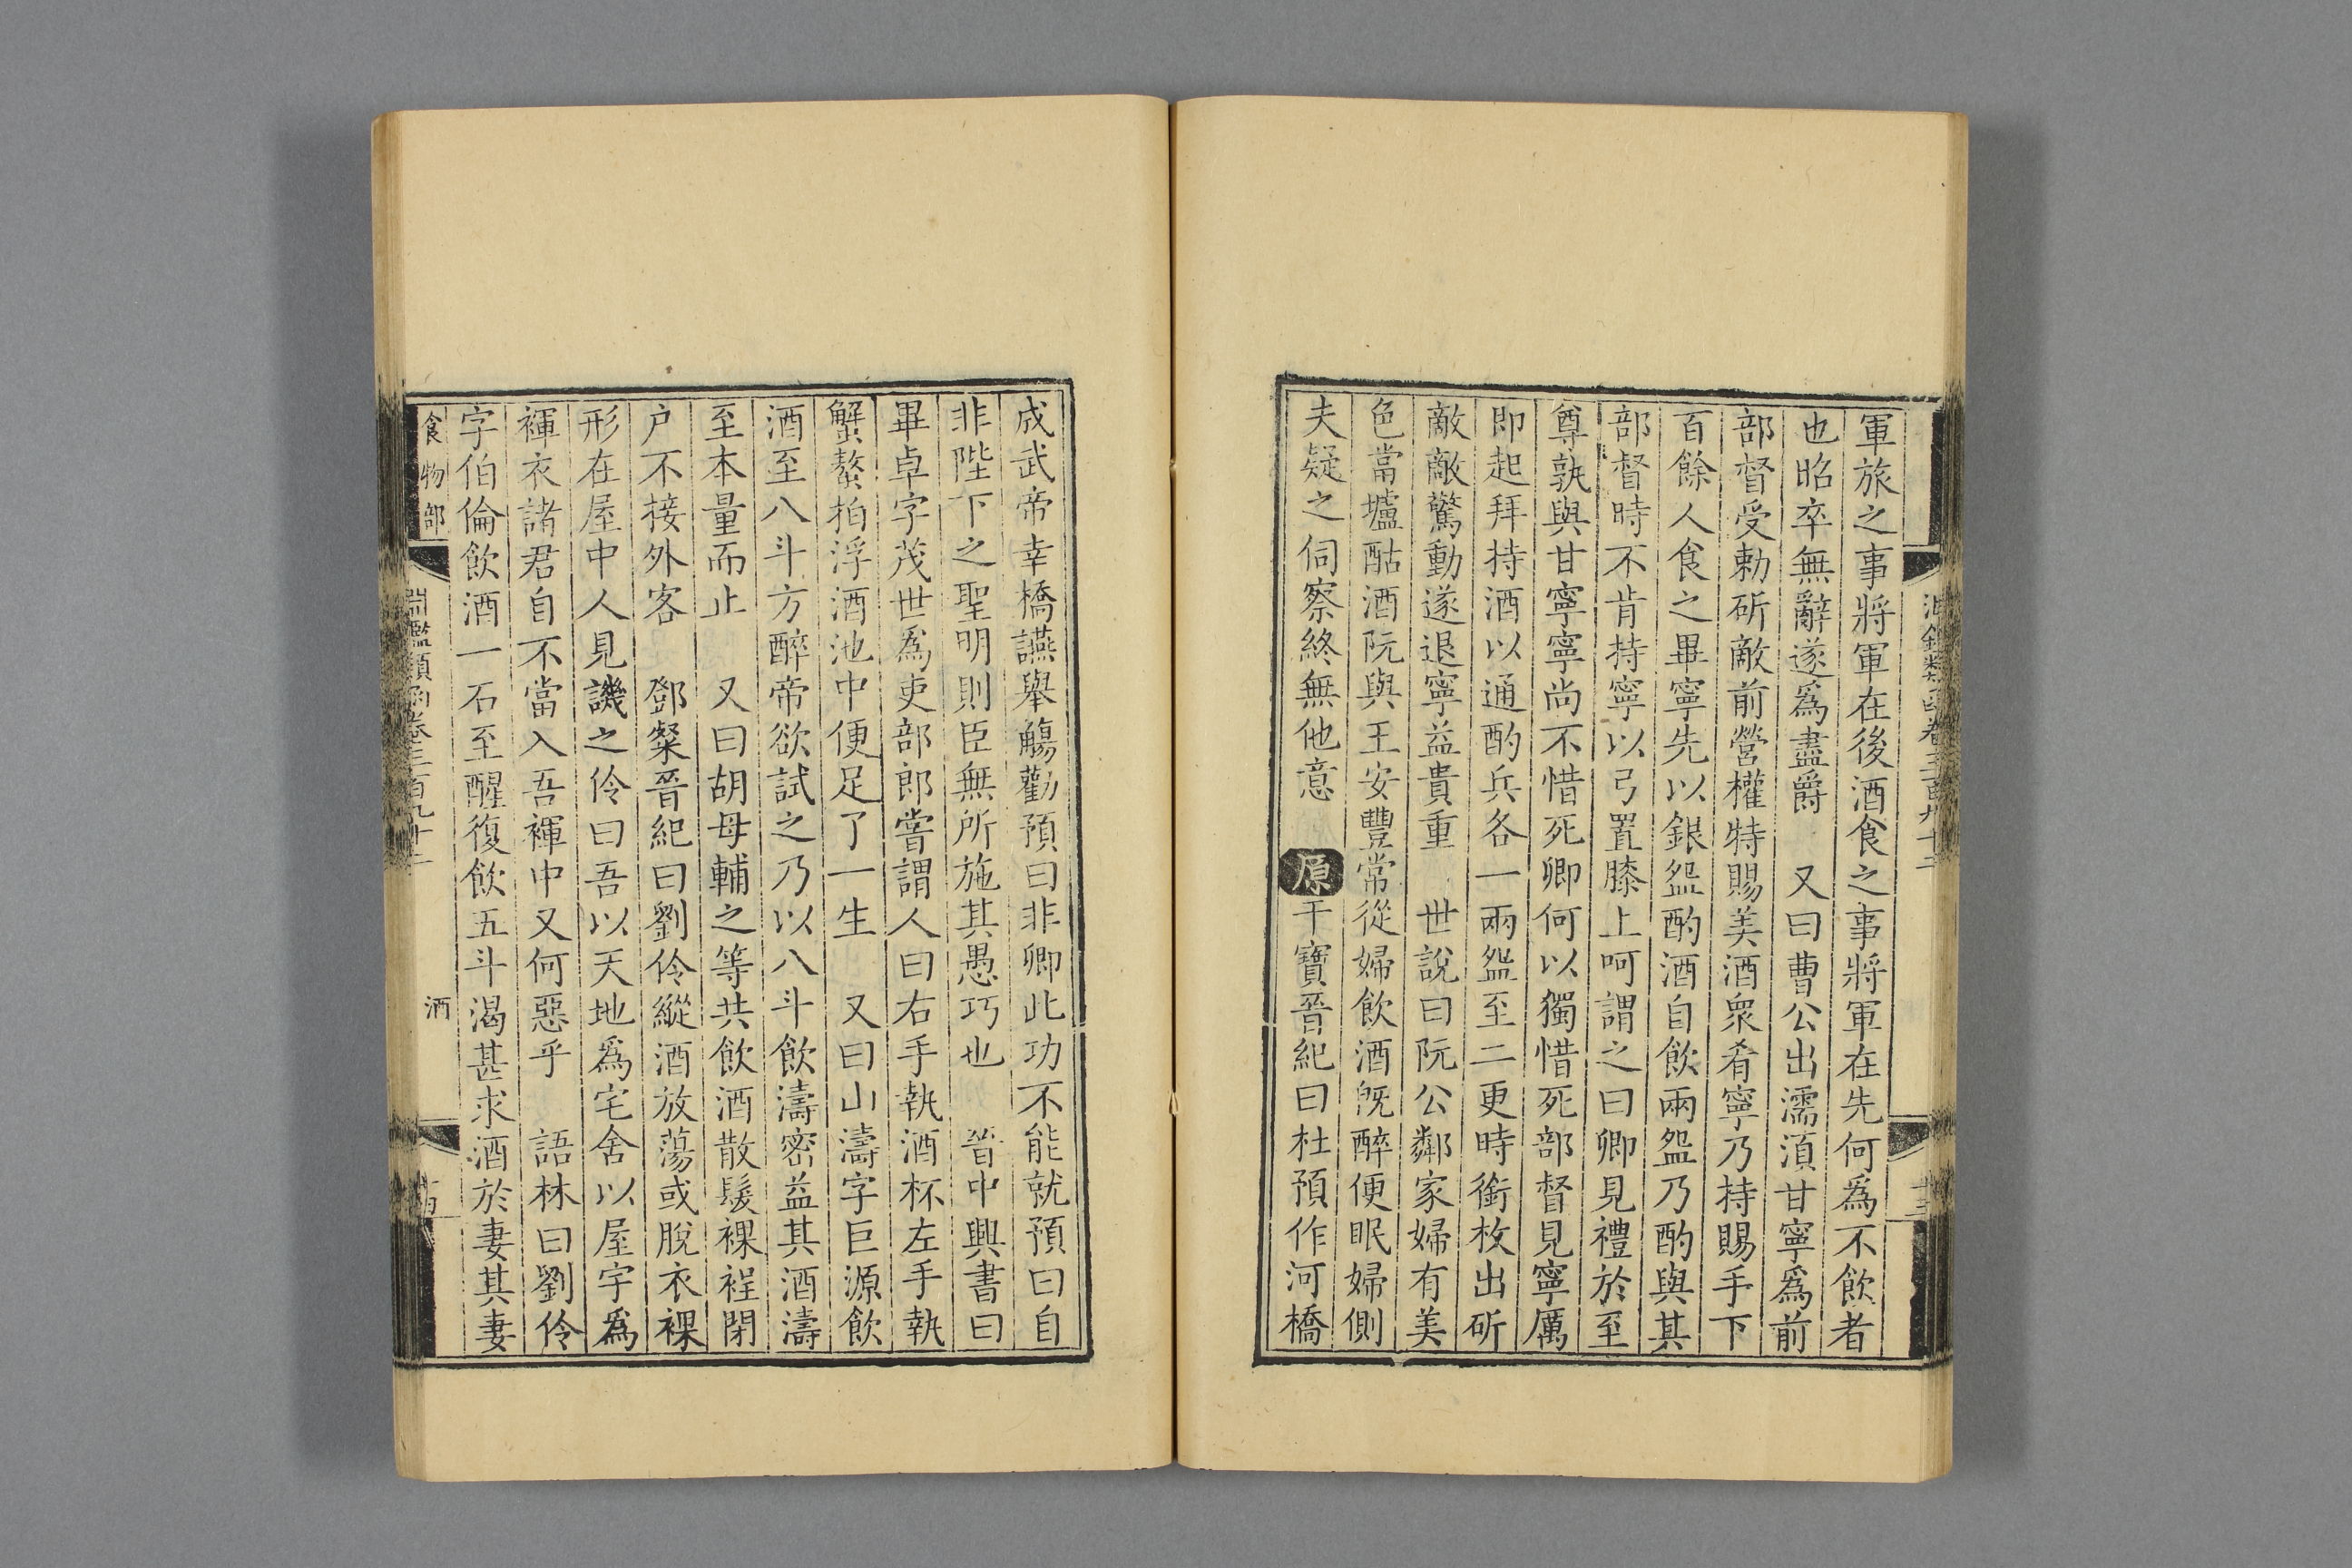 軍旅之事將軍在後酒食之事將軍在先何為不飲者
也昭卒無辭遂為盡爵　又曰曹公出濡湏甘寧為前
部督受勅斫敵前營權特賜美酒衆肴寧乃持賜手下
百餘人食之畢寧先以銀盌酌酒自飲兩盌乃酌與其
部督時不肯持寧以弓置膝上呵謂之曰卿見禮於至
尊孰與甘寧寧尚不惜死卿何以獨惜死部督見寧厲
即起拜持酒以通酌兵各一兩盌至二更時銜枚出斫
敵敵驚動遂退寧益貴重　世說曰阮公鄰家婦有美
色當壚酤酒阮與王安豐常從婦飲酒旣醉便眠婦側
夫疑之伺察終無他意　原干寶晉紀曰杜預作河橋
成武帝幸橋讌舉觴勸預曰非卿此功不能就預曰自
非陛下之聖明則臣無所施其愚巧也　晉中興書曰
畢卓字茂世為吏部郎嘗謂人曰右手執酒杯左手執
蟹螯拍浮酒池中便足了一生　又曰山濤字巨源飲
酒至八斗方醉帝欲試之乃以八斗飲濤密益其酒濤
至本量而止　又曰胡母輔之等共飲酒散髮裸裎閉
户不接外客　鄧粲晉紀曰劉伶縱酒放蕩或脫衣裸
形在屋中人見譏之伶曰吾以天地為宅舍以屋宇為
褌衣諸君自不當入吾褌中又何惡乎　語林曰劉伶
字伯倫飲酒一石至醒復飲五斗渴甚求酒於妻其妻
食物部　淵鑑類函卷三百九十二　酒